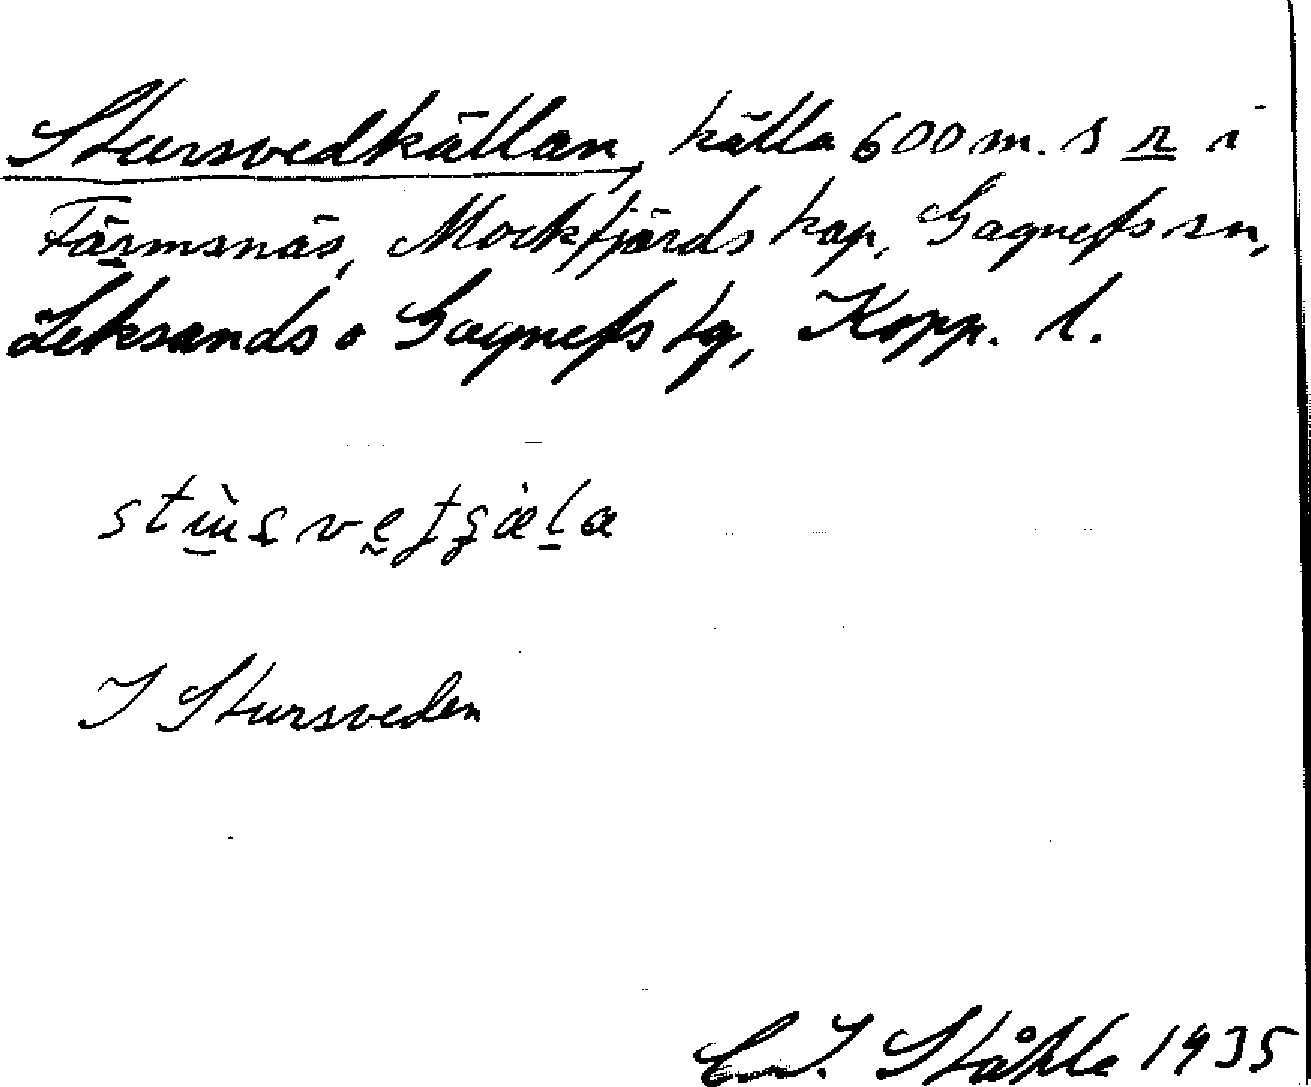 Stursvedkällan, källa 600 m. s r i
Färmsnäs, Mockfjärds kap, Gagnefs sn,
Leksands o Gagnefs tg, Kopp. l.
I Stursveden
C. I. Ståhle 1935